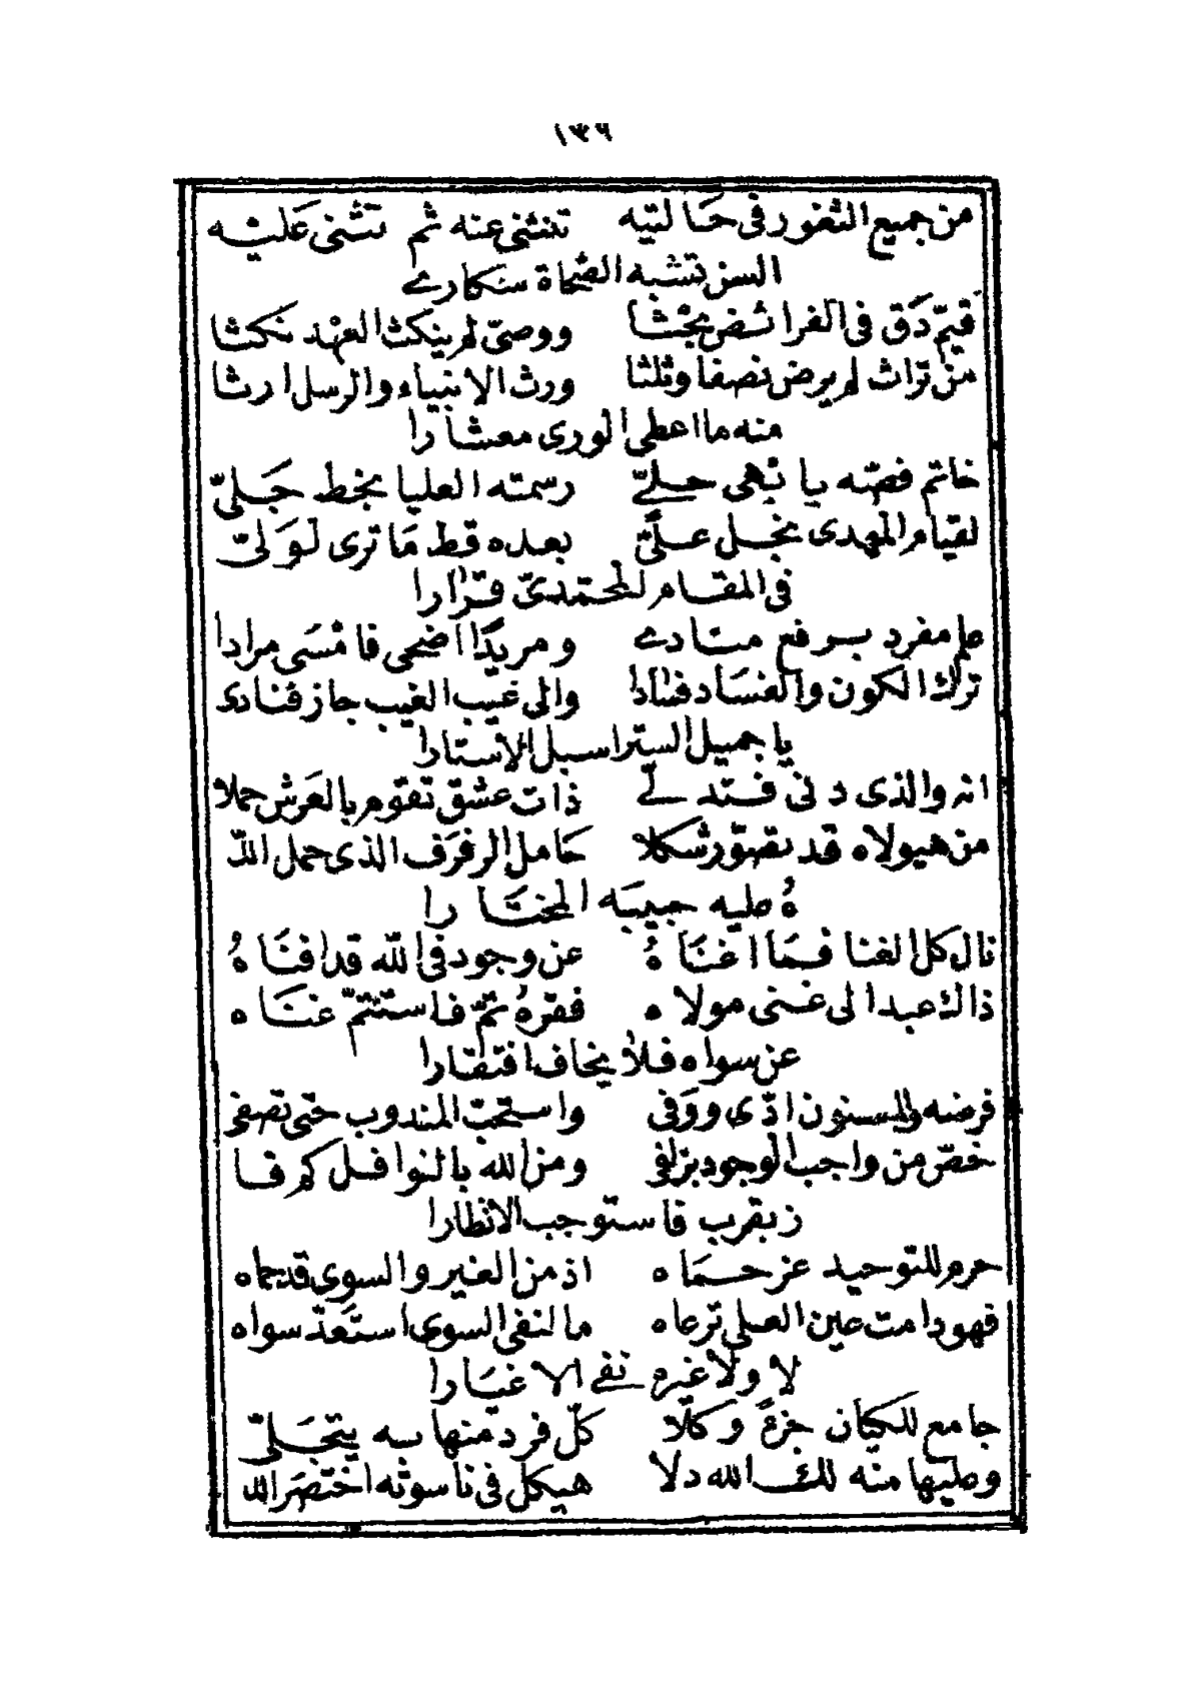 ١٣٦
من جميع الثغور فى حَالتيه تنثنى عنه ثم تثنى عَليه
السن تشبه الصحاة سكارى
قيّم دَق فى الفرائض بحْثا ووصىّ لم ينكث العهْد نكثا
من تراث لم يرض نصفا وثلثا ورث الانبياء والرسل ارثا
منه ما اعطى الورى معشارا
خاتم فصّه يا نهى حلىّ رسمته العليا بخط جَلىّ
لقيام المهدى نجل علىّ بعده قط مَا ترى لوَلىّ
فى المقام المحمّدىّ قرارا
علم مفرد برفع منادى ومريدًا اضحى فامْسَى مرادا
ترك الكون والفسَاد فسادا والى غيب الغيب جاز فنادى
يا جميل الستر اسبل الاستارا
انه والذى دنى فتدلى ذات عشق تقوم بالعَرش حملا
من هيولاه قد تصوّر شكلا حَامل الرفرَف الذى حمل اللّ
هُ عليه حبيبَه المختَارا
نال كل الغنا فمَا اغنَاهُ عن وجود فى اللّه قد افنَاهُ
ذاك عبد الى غنى مولاه فقرهُ تمّ فاستتمّ غنَاه
عن سواه فلا يخاف افتقارا
فرضه والمسنون ادّى ووَفى واستحبّ المندوب حتى تصفى
خصّ من واجب الوجود بزلفى ومن اللّه بالنوافل كم فا
ز بقرب فاستوجب الانظارا
حرم للتوحيد عز حمَاه اذ من الغير والسوى قد حماه
فهو دامت عين العلى ترعاه ما لنفى السوى استعَدّ سواه
لا ولا غيره نفى الاغيَارا
جامع للكيان جزءً وكلّا كلّ فرد منها به يتجَلىّ
وعليها منه لك اللّه دلا هيكل فى ناسوته اختصَر اللا